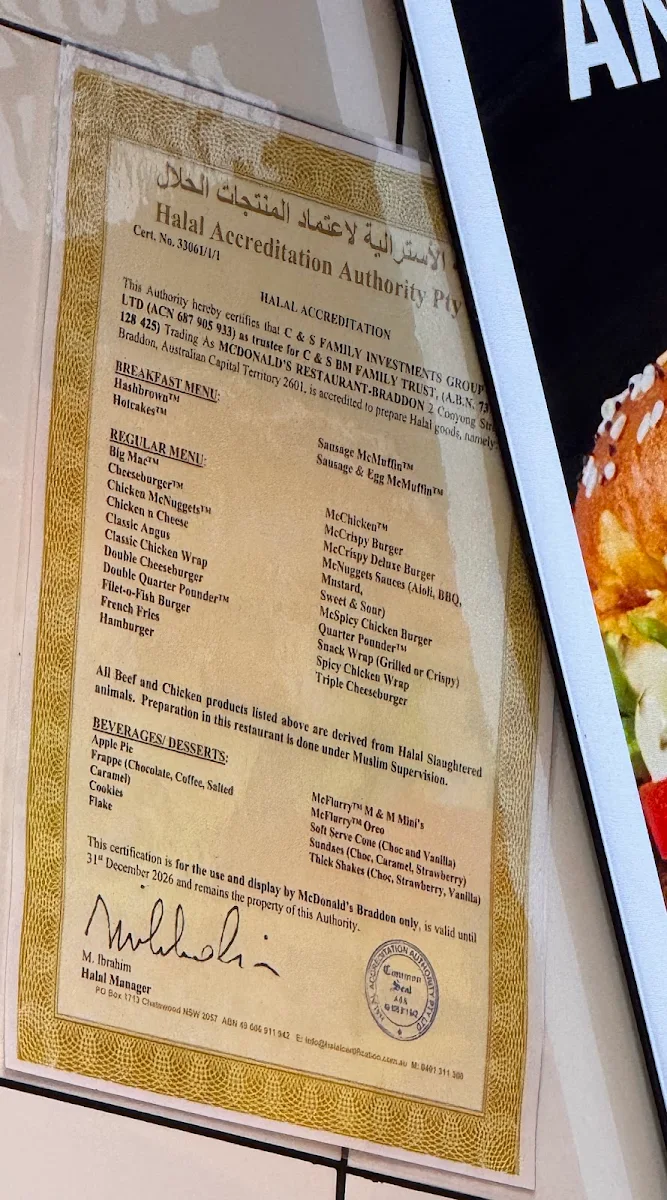 الأسترالية لاعتماد المنتجات الحلال
Halal Accreditation Authority Pty
Cert. No. 33061/1/1
HALAL ACCREDITATION
This Authority hereby certifies that C & S FAMILY INVESTMENTS GROUP
LTD (ACN 687 905 933) as trustee for C & S BM FAMILY TRUST, (A.B.N. 73
128 425) Trading As MCDONALD'S RESTAURANT-BRADDON 2 Cooyong Str
Braddon, Australian Capital Territory 2601, is accredited to prepare Halal goods, namely:
BREAKFAST MENU:
Hashbrown™
Hotcakes™
Sausage McMuffin™
Sausage & Egg McMuffin™
REGULAR MENU:
Big Mac™
Cheeseburger™
Chicken McNuggets™
Chicken n Cheese
Classic Angus
Classic Chicken Wrap
Double Cheeseburger
Double Quarter Pounder™
Filet-o-Fish Burger
French Fries
Hamburger
McChicken™
McCrispy Burger
McCrispy Deluxe Burger
McNuggets Sauces (Aioli, BBQ,
Mustard,
Sweet & Sour)
McSpicy Chicken Burger
Quarter Pounder™
Snack Wrap (Grilled or Crispy)
Spicy Chicken Wrap
Triple Cheeseburger
All Beef and Chicken products listed above are derived from Halal Slaughtered
animals. Preparation in this restaurant is done under Muslim Supervision.
BEVERAGES/ DESSERTS:
Apple Pie
Frappe (Chocolate, Coffee, Salted
Caramel)
Cookies
Flake
McFlurry™ M & M Mini's
McFlurry™ Oreo
Soft Serve Cone (Choc and Vanilla)
Sundaes (Choc, Caramel, Strawberry)
Thick Shakes (Choc, Strawberry, Vanilla)
This certification is for the use and display by McDonald's Braddon only, is valid until
31st December 2026 and remains the property of this Authority.
M. Ibrahim
Halal Manager
PO Box 1713 Chatswood NSW 2057 ABN 49 606 911 942 E: info@halalcertification.com.au M: 0401 311 300
HALAL ACCREDITATION AUTHORITY PTY LTD
Common
Seal
AN